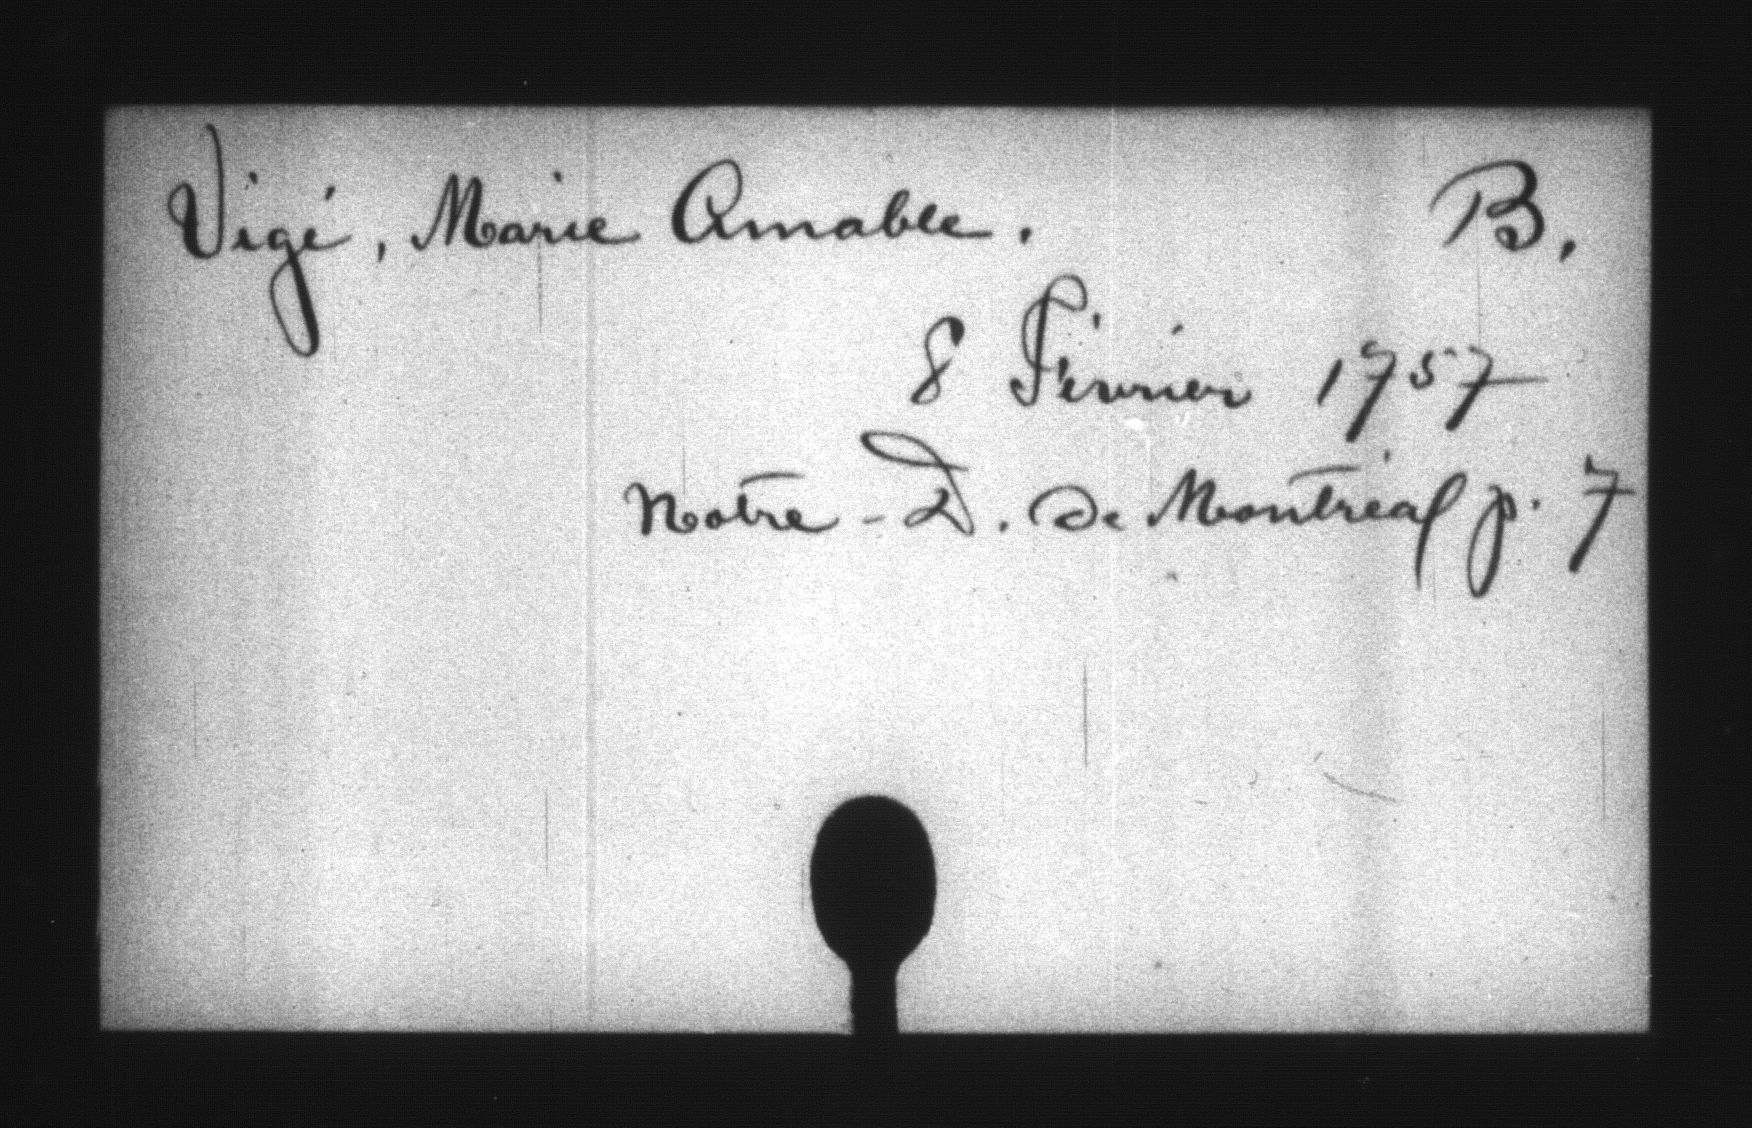 Vigé, Marie Amable. B.
8 Février 1757
Notre-D. de Montréal p. 7